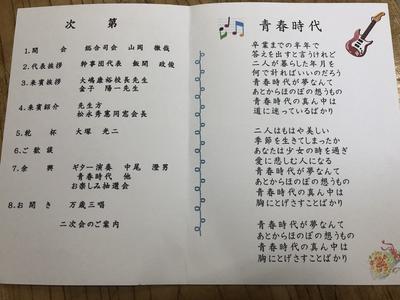 次　第
1.開　会　総合司会　山岡　徹哉
2.代表挨拶　幹事団代表　飯間　政俊
3.来賓挨拶　大嶋康裕校長先生
金子　陽一先生
4.来賓紹介　先生方
松永秀憲同窓会長
5.乾　杯　大塚　光二
6.ご歓談
7.余　興　ギター演奏　中尾　澄男
青春時代　他
お楽しみ抽選会
8.お開き　万歳三唱
二次会のご案内
青春時代
卒業までの半年で
答えを出すと言うけれど
二人が暮らした年月を
何で計ればいいのだろう
青春時代が夢なんて
あとからほのぼの想うもの
青春時代の真ん中は
道に迷っているばかり
二人はもはや美しい
季節を生きてしまったか
あなたは少女の時を過ぎ
愛に悲しむ人になる
青春時代が夢なんて
あとからほのぼの想うもの
青春時代の真ん中は
胸にとげさすことばかり
青春時代が夢なんて
あとからほのぼの想うもの
青春時代の真ん中は
胸にとげさすことばかり